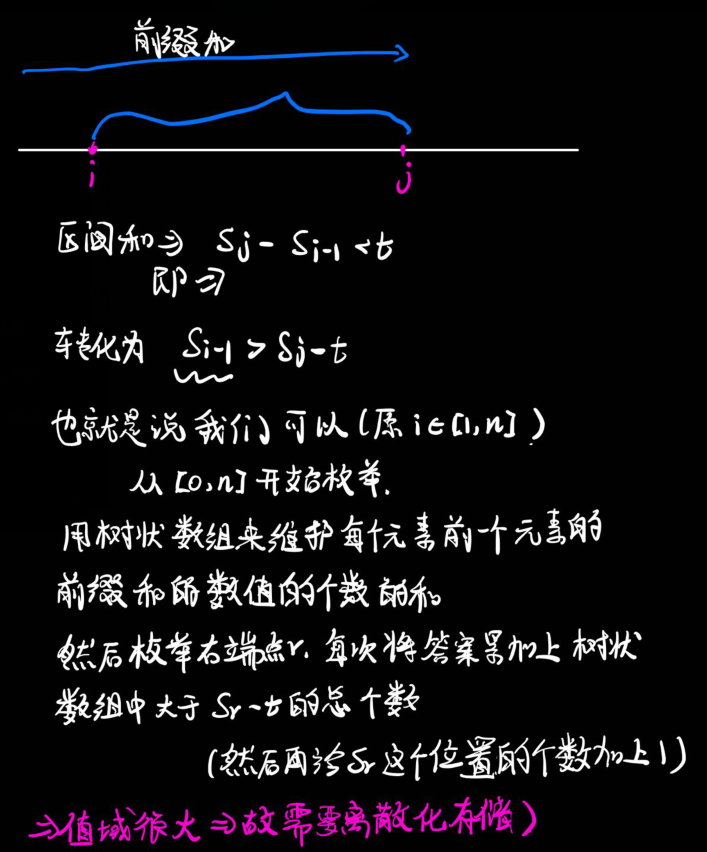 前缀和
i j
区间和⇒ Sj - Si-1 < t
即⇒
转化为 Si-1 > Sj - t
也就是说我们可以(原 i∈[1,n])
从[0,n]开始枚举.
用树状数组来维护每个元素前一个元素的
前缀和的数值的个数的和
然后枚举右端点r. 每次将答案累加上树状
数组中大于 Sr - t 的总个数
(然后再给Sr这个位置的个数加上1)
⇒值域很大⇒故需要离散化存储)